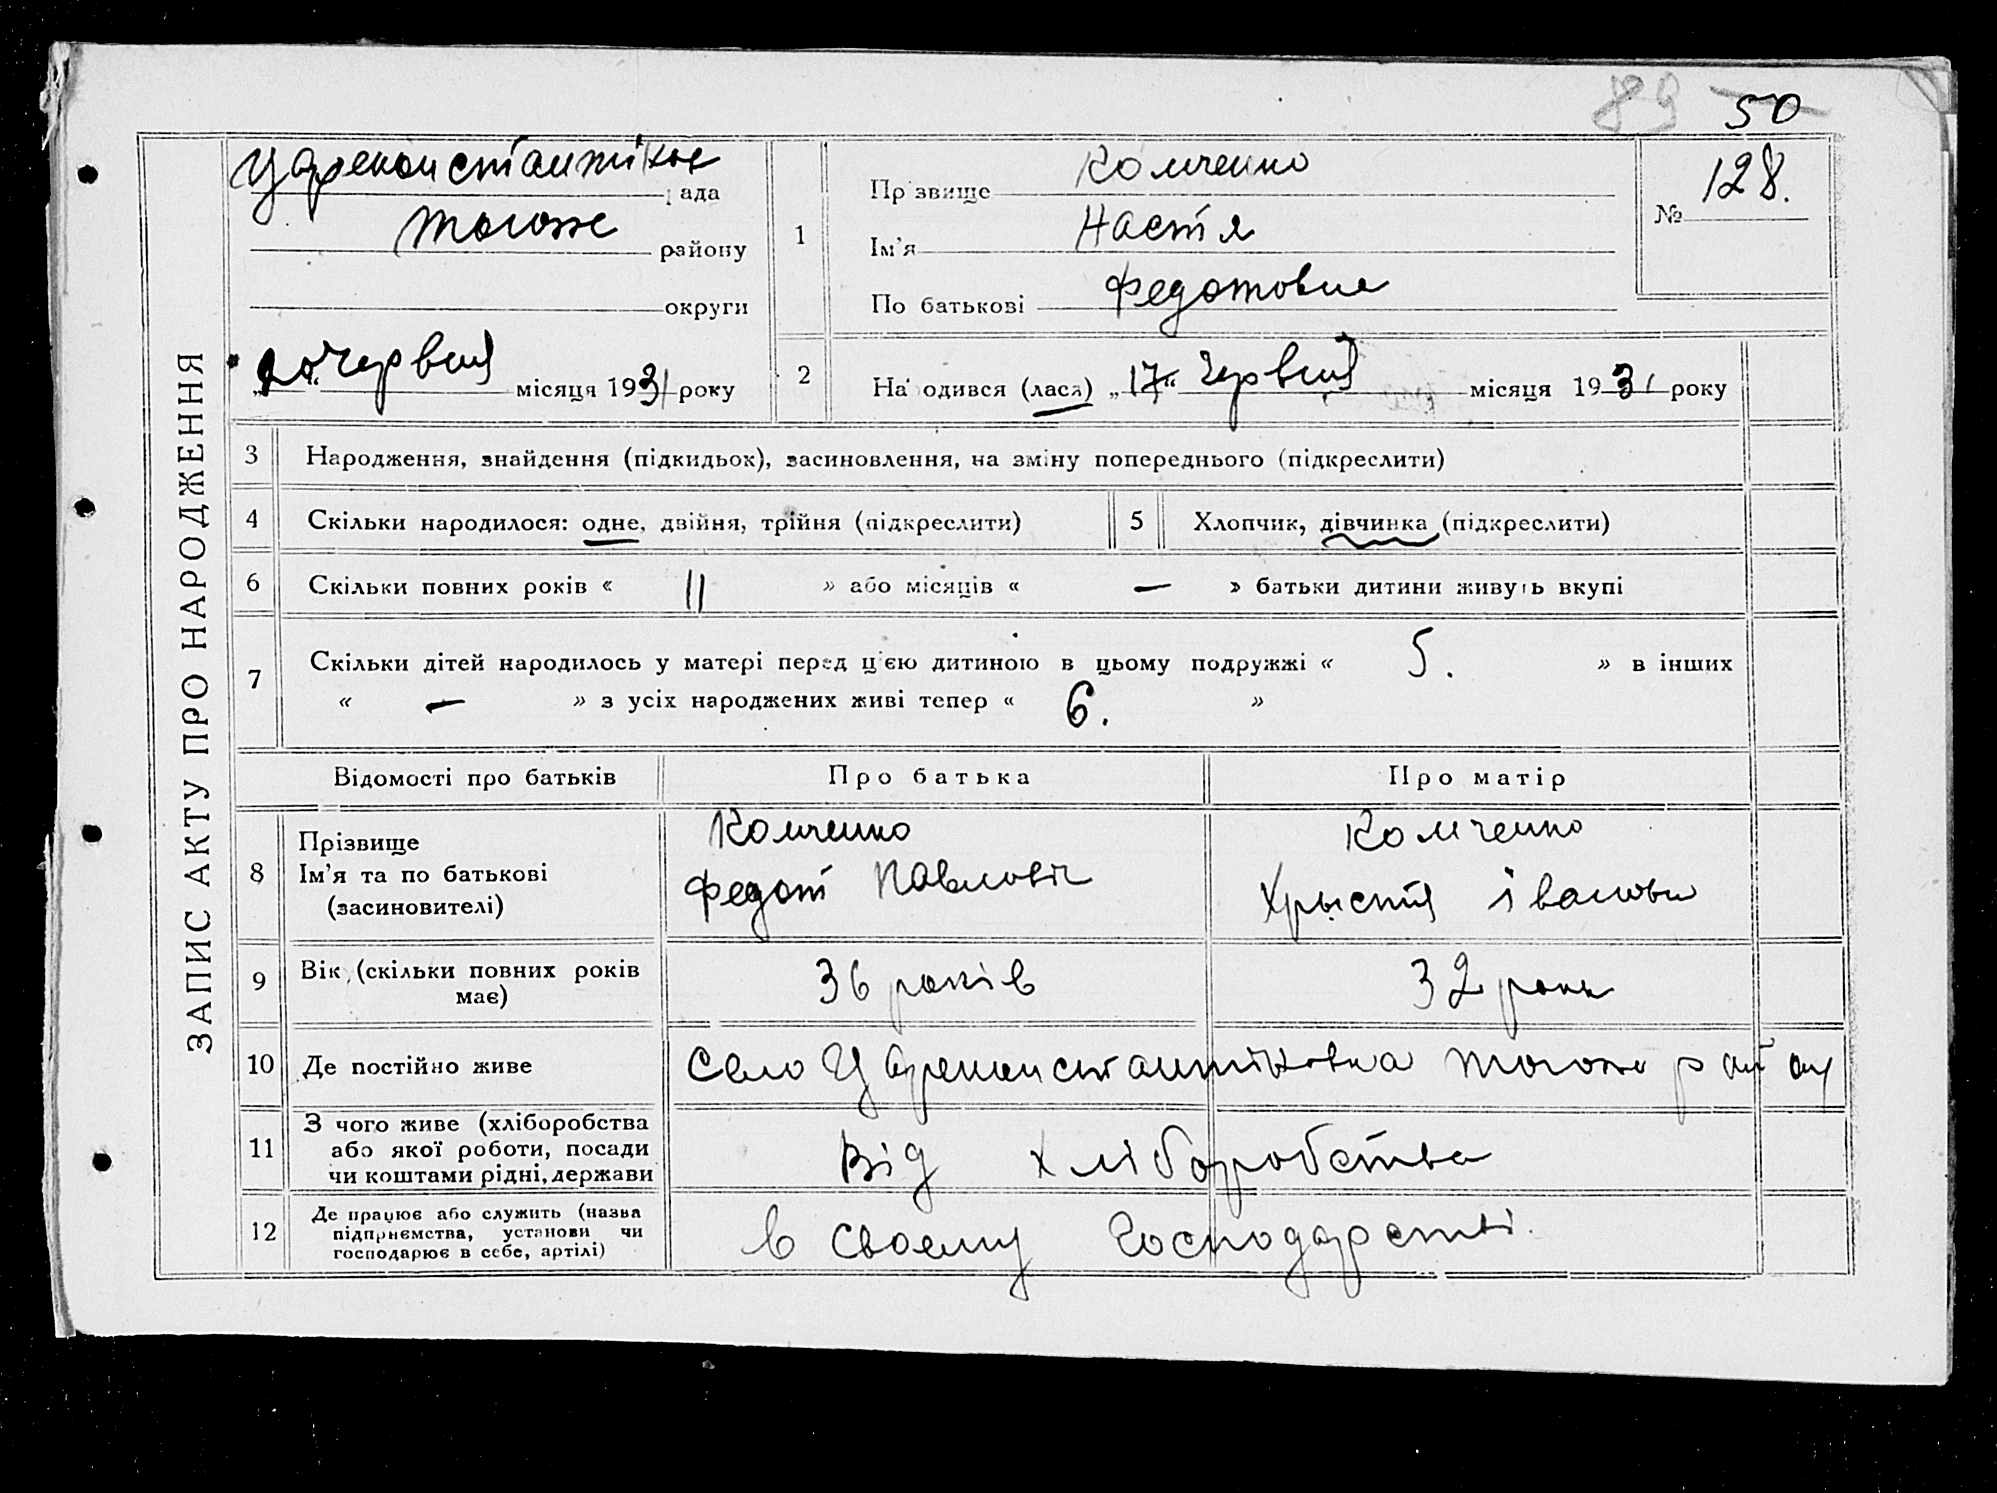 89 50
Цареконстантінов рада
тогоже району
округи
20 Червня місяця 1931 року
1
Прізвище Комченко
Ім'я Настя
По батькові Федотовна
№ 128.
2
Народився (лася) „17“ Червня місяця 1931 року
ЗАПИС АКТУ ПРО НАРОДЖЕННЯ
3 Народження, знайдення (підкидьок), засиновлення, на зміну попереднього (підкреслити)
4 Скільки народилося: одне, двійня, трійня (підкреслити) 5 Хлопчик, дівчинка (підкреслити)
6 Скільки повних років « 11 » або місяців « — » батьки дитини живуть вкупі
7 Скільки дітей народилось у матері перед цією дитиною в цьому подружжі « 5. » в інших
« — » з усіх народжених живі тепер « 6. »
Відомості про батьків Про батька Про матір
8
Прізвище
Ім'я та по батькові
(засиновителі)
Комченко
Федот Павловіч
Комченко
Хрыстя Івановн
9
Вік (скільки повних років
має)
36 років 32 роки
10 Де постійно живе Село Цареконстантіновка тогоже району
11
З чого живе (хліборобства
або якої роботи, посади
чи коштами рідні, держави
Від хліборобства
12
Де працює або служить (назва
підприємства, установи чи
господарює в себе, артілі)
в своему господарстві.